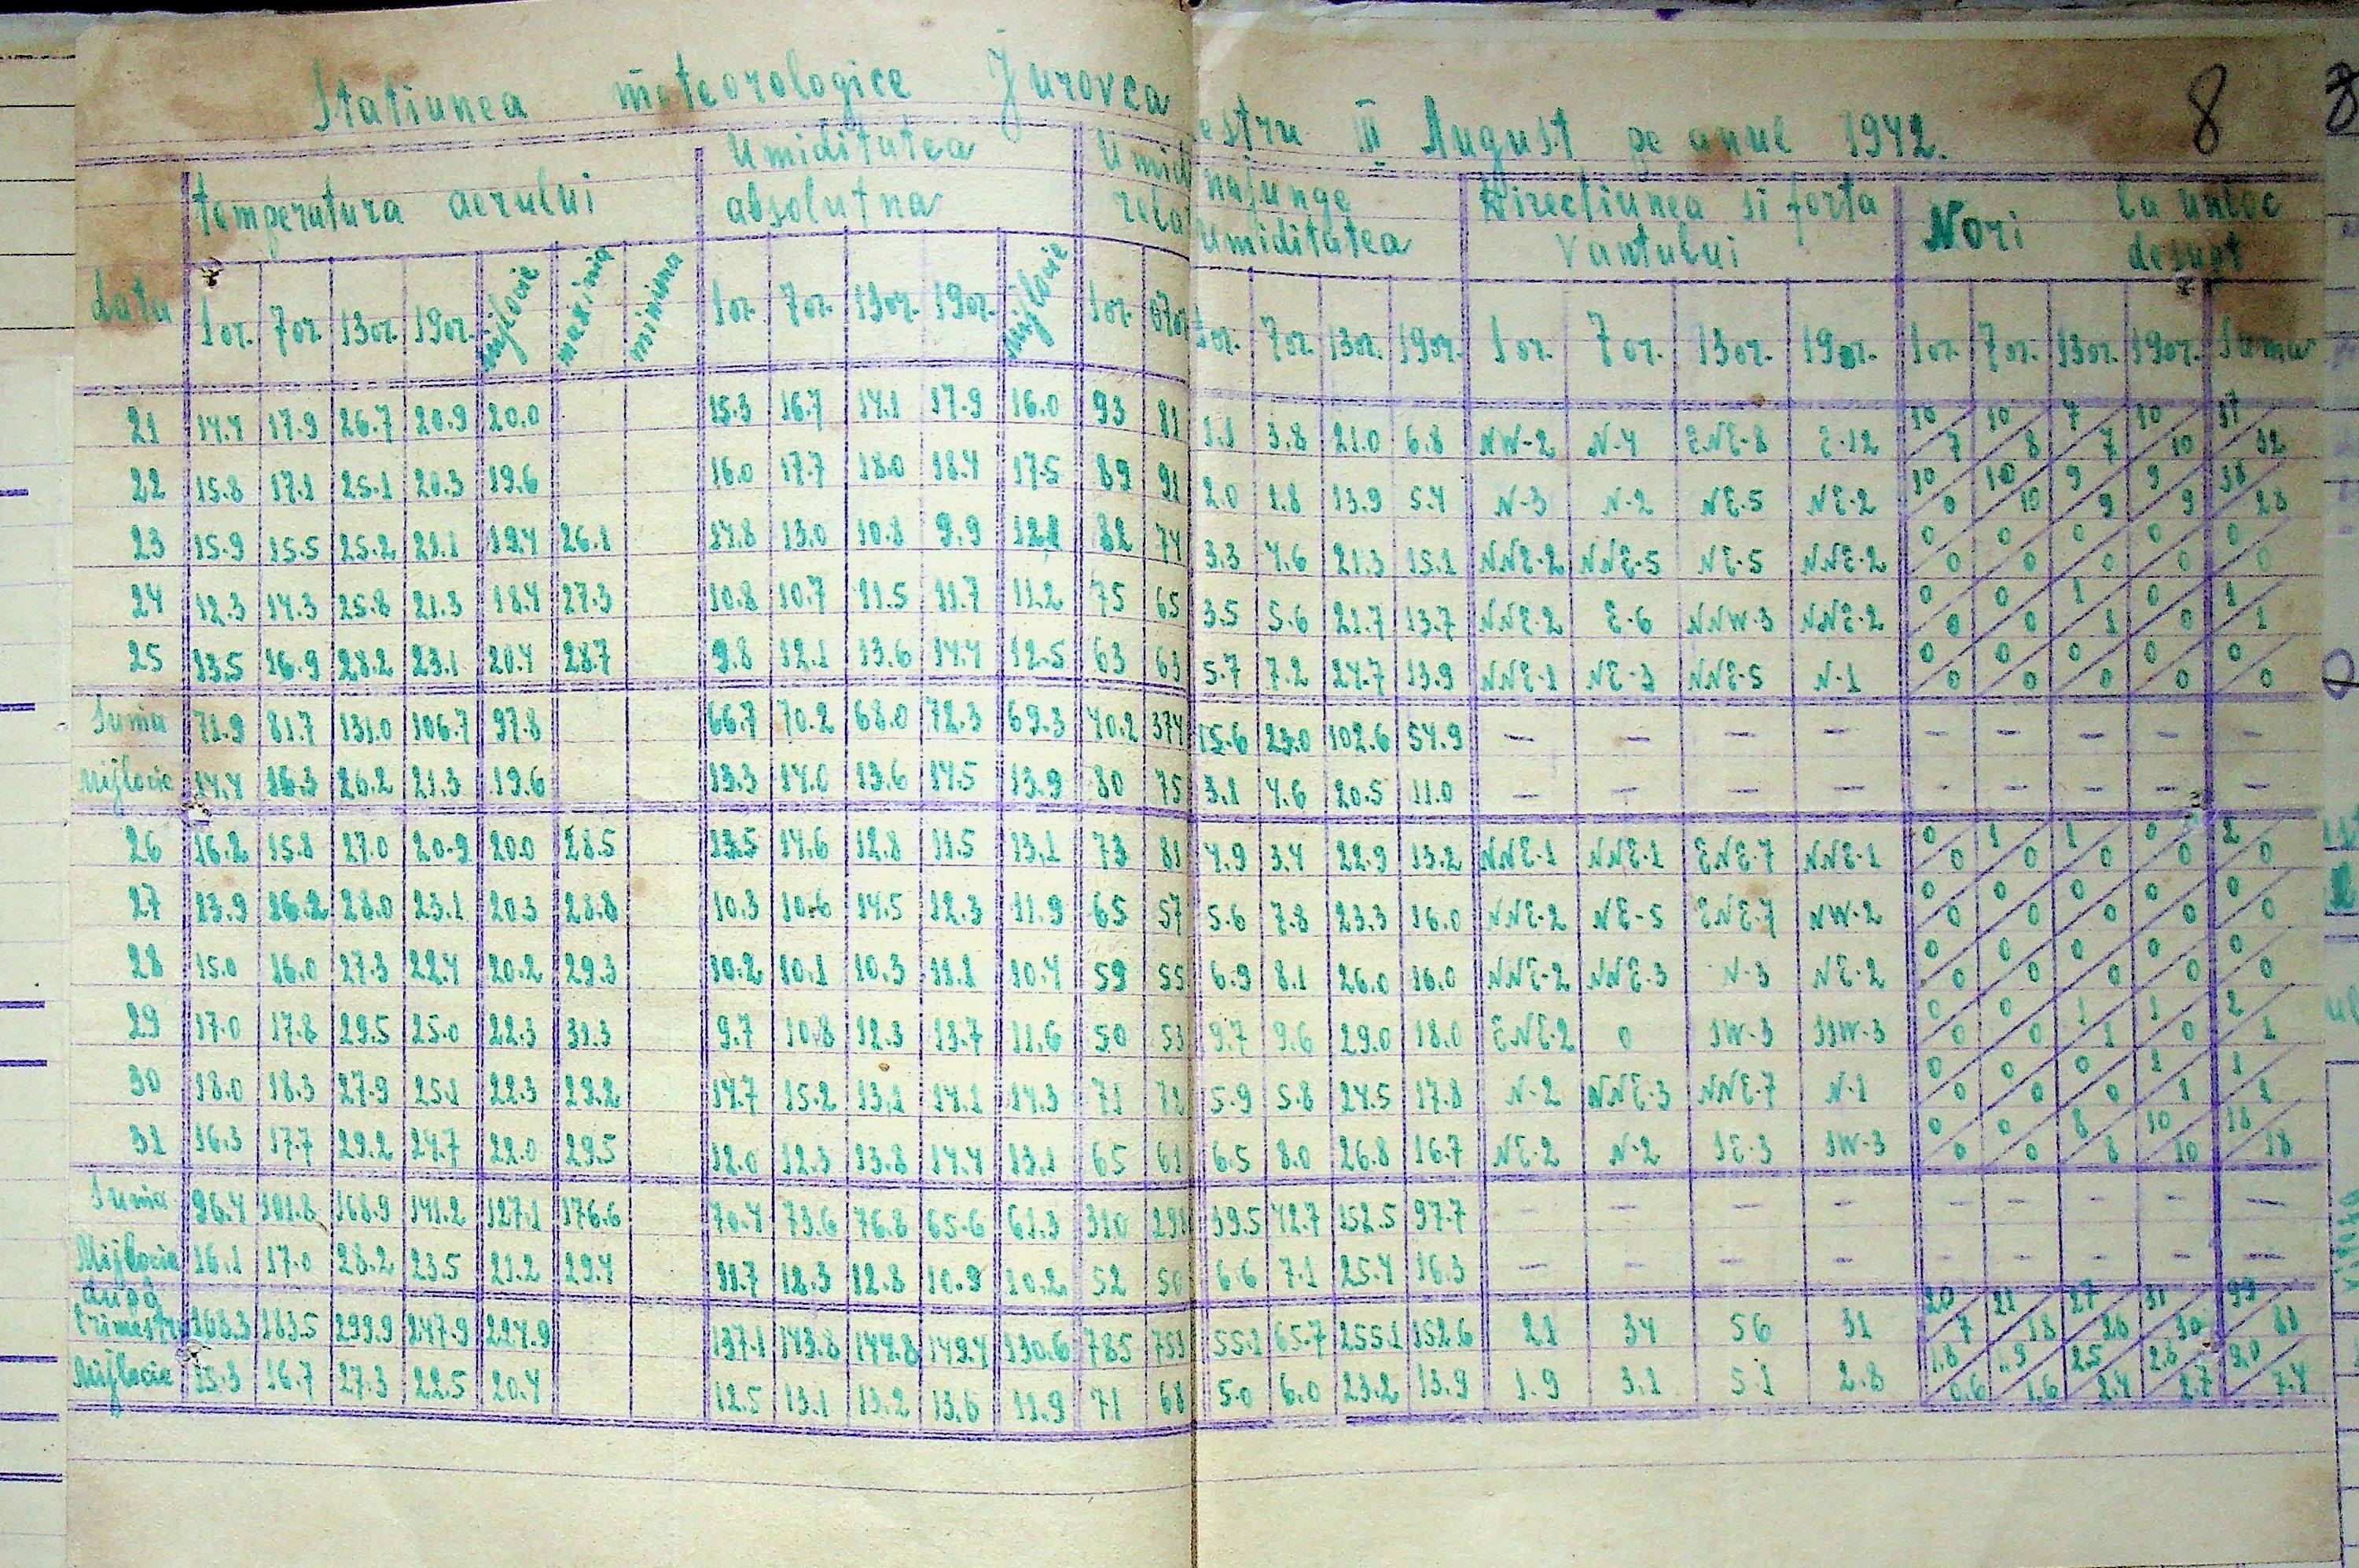 Statiunea meteorologice Jurovca estru III August pe anul 1942. 8
data temperatura aerului Umiditatea absolutna Umidi relat najunge Umiditatea Directiunea si forta Vantului Nori la unloc desupt
1or. 7or. 13or. 19or. mijlocie maxima minima 1or. 7or. 13or. 19or. mijlocie 1or. 07or 1or. 7or. 13or. 19or. 1or. 7or. 13or. 19or. 1or. 7or. 13or. 19or. Suma
21 14.4 17.9 26.7 20.9 20.0 15.3 16.7 14.1 17.9 16.0 93 81 1.1 3.8 21.0 6.8 NW-2 N-4 ENE-8 E-12 10/7 10/8 7/7 10/10 37/32
22 15.8 17.1 25.1 20.3 19.6 16.0 17.7 18.0 18.4 17.5 89 91 2.0 1.8 13.9 5.4 N-3 N-2 NE-5 NE-2 10/0 10/10 9/9 9/9 38/28
23 15.9 15.5 25.2 21.1 19.4 26.1 14.8 13.0 10.8 9.9 12.1 82 74 3.3 4.6 21.3 15.1 NNE-2 NNE-5 NE-5 NNE-2 0/0 0/0 0/0 0/0 0/0
24 12.3 14.3 25.8 21.3 18.4 27.3 10.8 10.7 11.5 11.7 11.2 75 65 3.5 5.6 21.7 13.7 NNE-2 E-6 NNW-3 NNE-2 0/0 0/0 1/1 0/0 1/1
25 13.5 16.9 28.2 23.1 20.4 28.7 9.8 12.1 13.6 14.4 12.5 63 63 5.7 7.2 24.7 13.9 NNE-1 NE-3 NNE-5 N-1 0/0 0/0 0/0 0/0 0/0
Suma 71.9 81.7 131.0 106.7 97.8 66.7 70.2 68.0 72.3 69.3 40.2 374 15.6 23.0 102.6 54.9 — — — — — — — — —
Mijlocie 14.4 16.3 26.2 21.3 19.6 13.3 14.0 13.6 14.5 13.9 80 75 3.1 4.6 20.5 11.0 — — — — — — — — —
26 16.2 15.8 27.0 20.9 20.0 28.5 13.5 14.6 12.8 11.5 13.1 73 81 4.9 3.4 22.9 13.2 NNE-1 NNE-1 ENE-7 NNE-1 0/0 1/0 1/0 0/0 2/0
27 13.9 16.2 28.0 23.1 20.3 28.8 10.3 10.6 14.5 12.3 11.9 65 57 5.6 7.8 23.3 16.0 NNE-2 NE-5 ENE-7 NW-2 0/0 0/0 0/0 0/0 0/0
28 15.0 16.0 27.3 22.4 20.2 29.3 10.2 10.1 10.3 11.1 10.4 59 55 6.9 8.1 26.0 16.0 NNE-2 NNE-3 N-3 NE-2 0/0 0/0 0/0 0/0 0/0
29 17.0 17.8 29.5 25.0 22.3 31.3 9.7 10.8 12.3 13.7 11.6 50 53 9.7 9.6 29.0 18.0 ENE-2 0 SW-3 SSW-3 0/0 0/0 1/1 1/0 2/1
30 18.0 18.3 27.9 25.1 22.3 29.2 14.7 15.2 13.1 14.1 14.3 71 72 5.9 5.8 24.5 17.8 N-2 NNE-3 NNE-7 N-1 0/0 0/0 0/0 1/1 1/1
31 16.3 17.7 29.2 24.7 22.0 29.5 12.0 12.3 13.8 14.4 13.1 65 61 6.5 8.0 26.8 16.7 NE-2 N-2 SE-3 SW-3 0/0 0/0 8/8 10/10 18/18
Suma 96.4 101.8 168.9 141.2 127.1 176.6 70.4 73.6 76.8 65.6 61.3 310 298 39.5 42.7 152.5 97.7 — — — — — — — — —
Mijlocie 16.1 17.0 28.2 23.5 21.2 29.4 11.7 12.3 12.8 10.9 10.2 52 50 6.6 7.1 25.4 16.3 — — — — — — — — —
după trimestru 168.3 183.5 299.9 247.9 224.9 137.1 143.8 144.8 149.4 130.6 785 753 55.1 65.7 255.1 152.6 21 34 56 31 20/7 21/18 27/26 31/30 99/81
Mijlocie 15.3 16.7 27.3 22.5 20.4 12.5 13.1 13.2 13.6 11.9 71 68 5.0 6.0 23.2 13.9 1.9 3.1 5.1 2.8 1.8/0.6 1.9/1.6 2.5/2.4 2.8/2.7 9.0/7.4